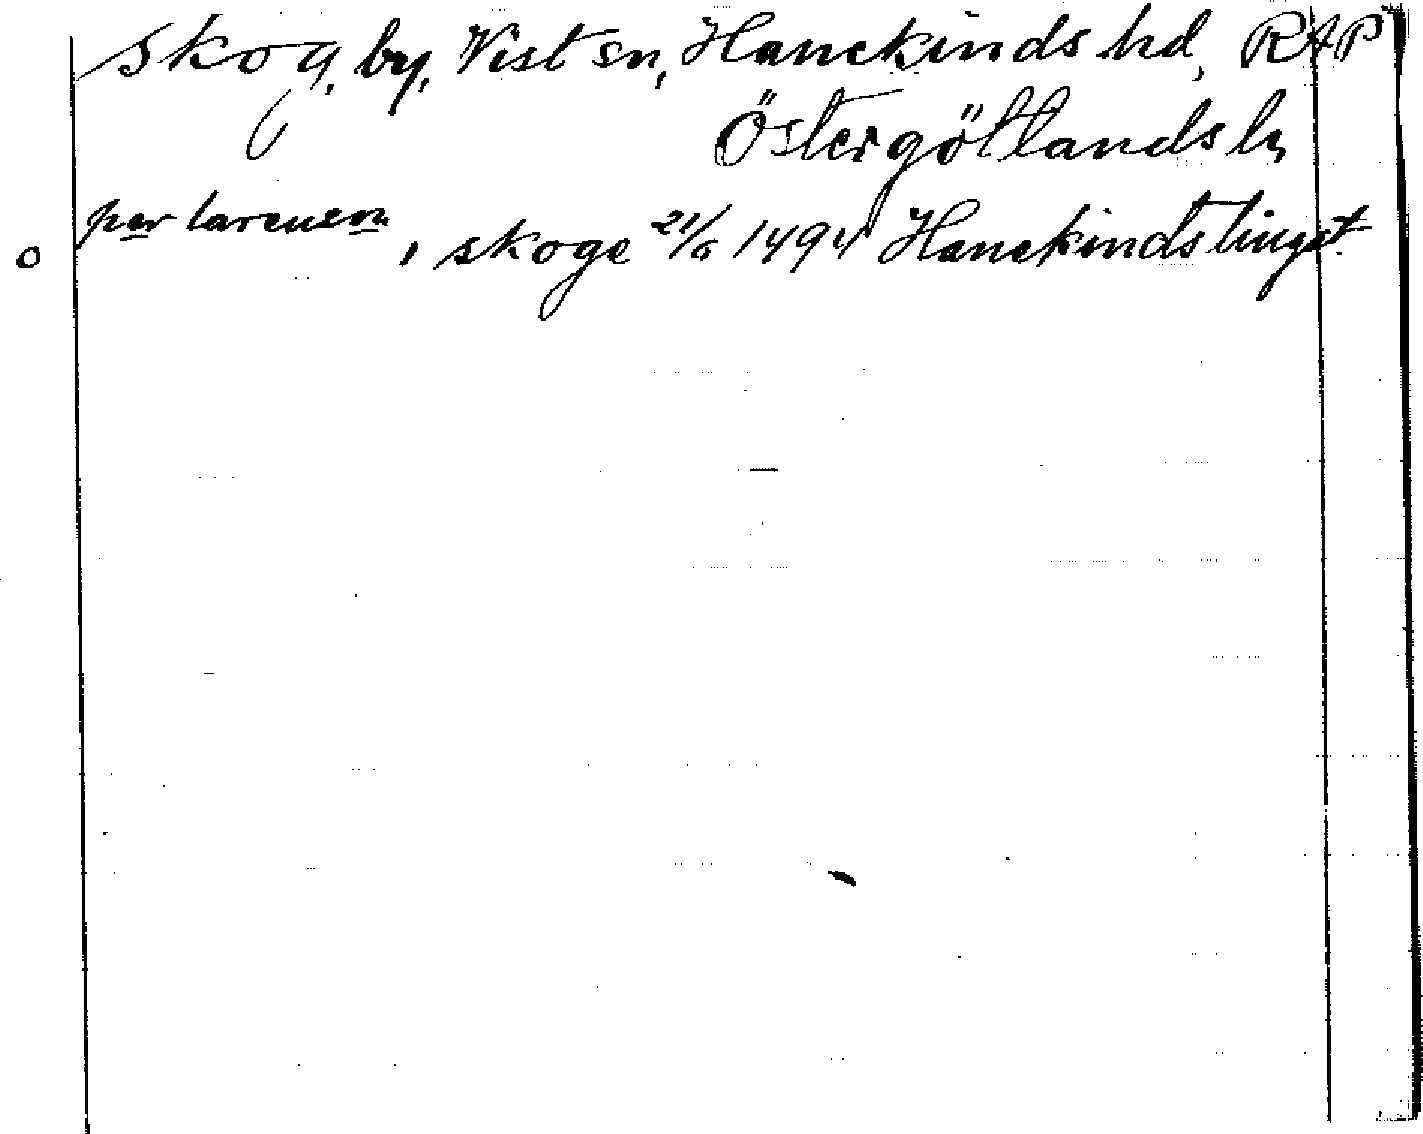 Skog, by, Vist sn, Hanekinds hd, RAP
Östergötlands l,
per larenem
o , i skoge 21/6 1494 Hanekindstingst.